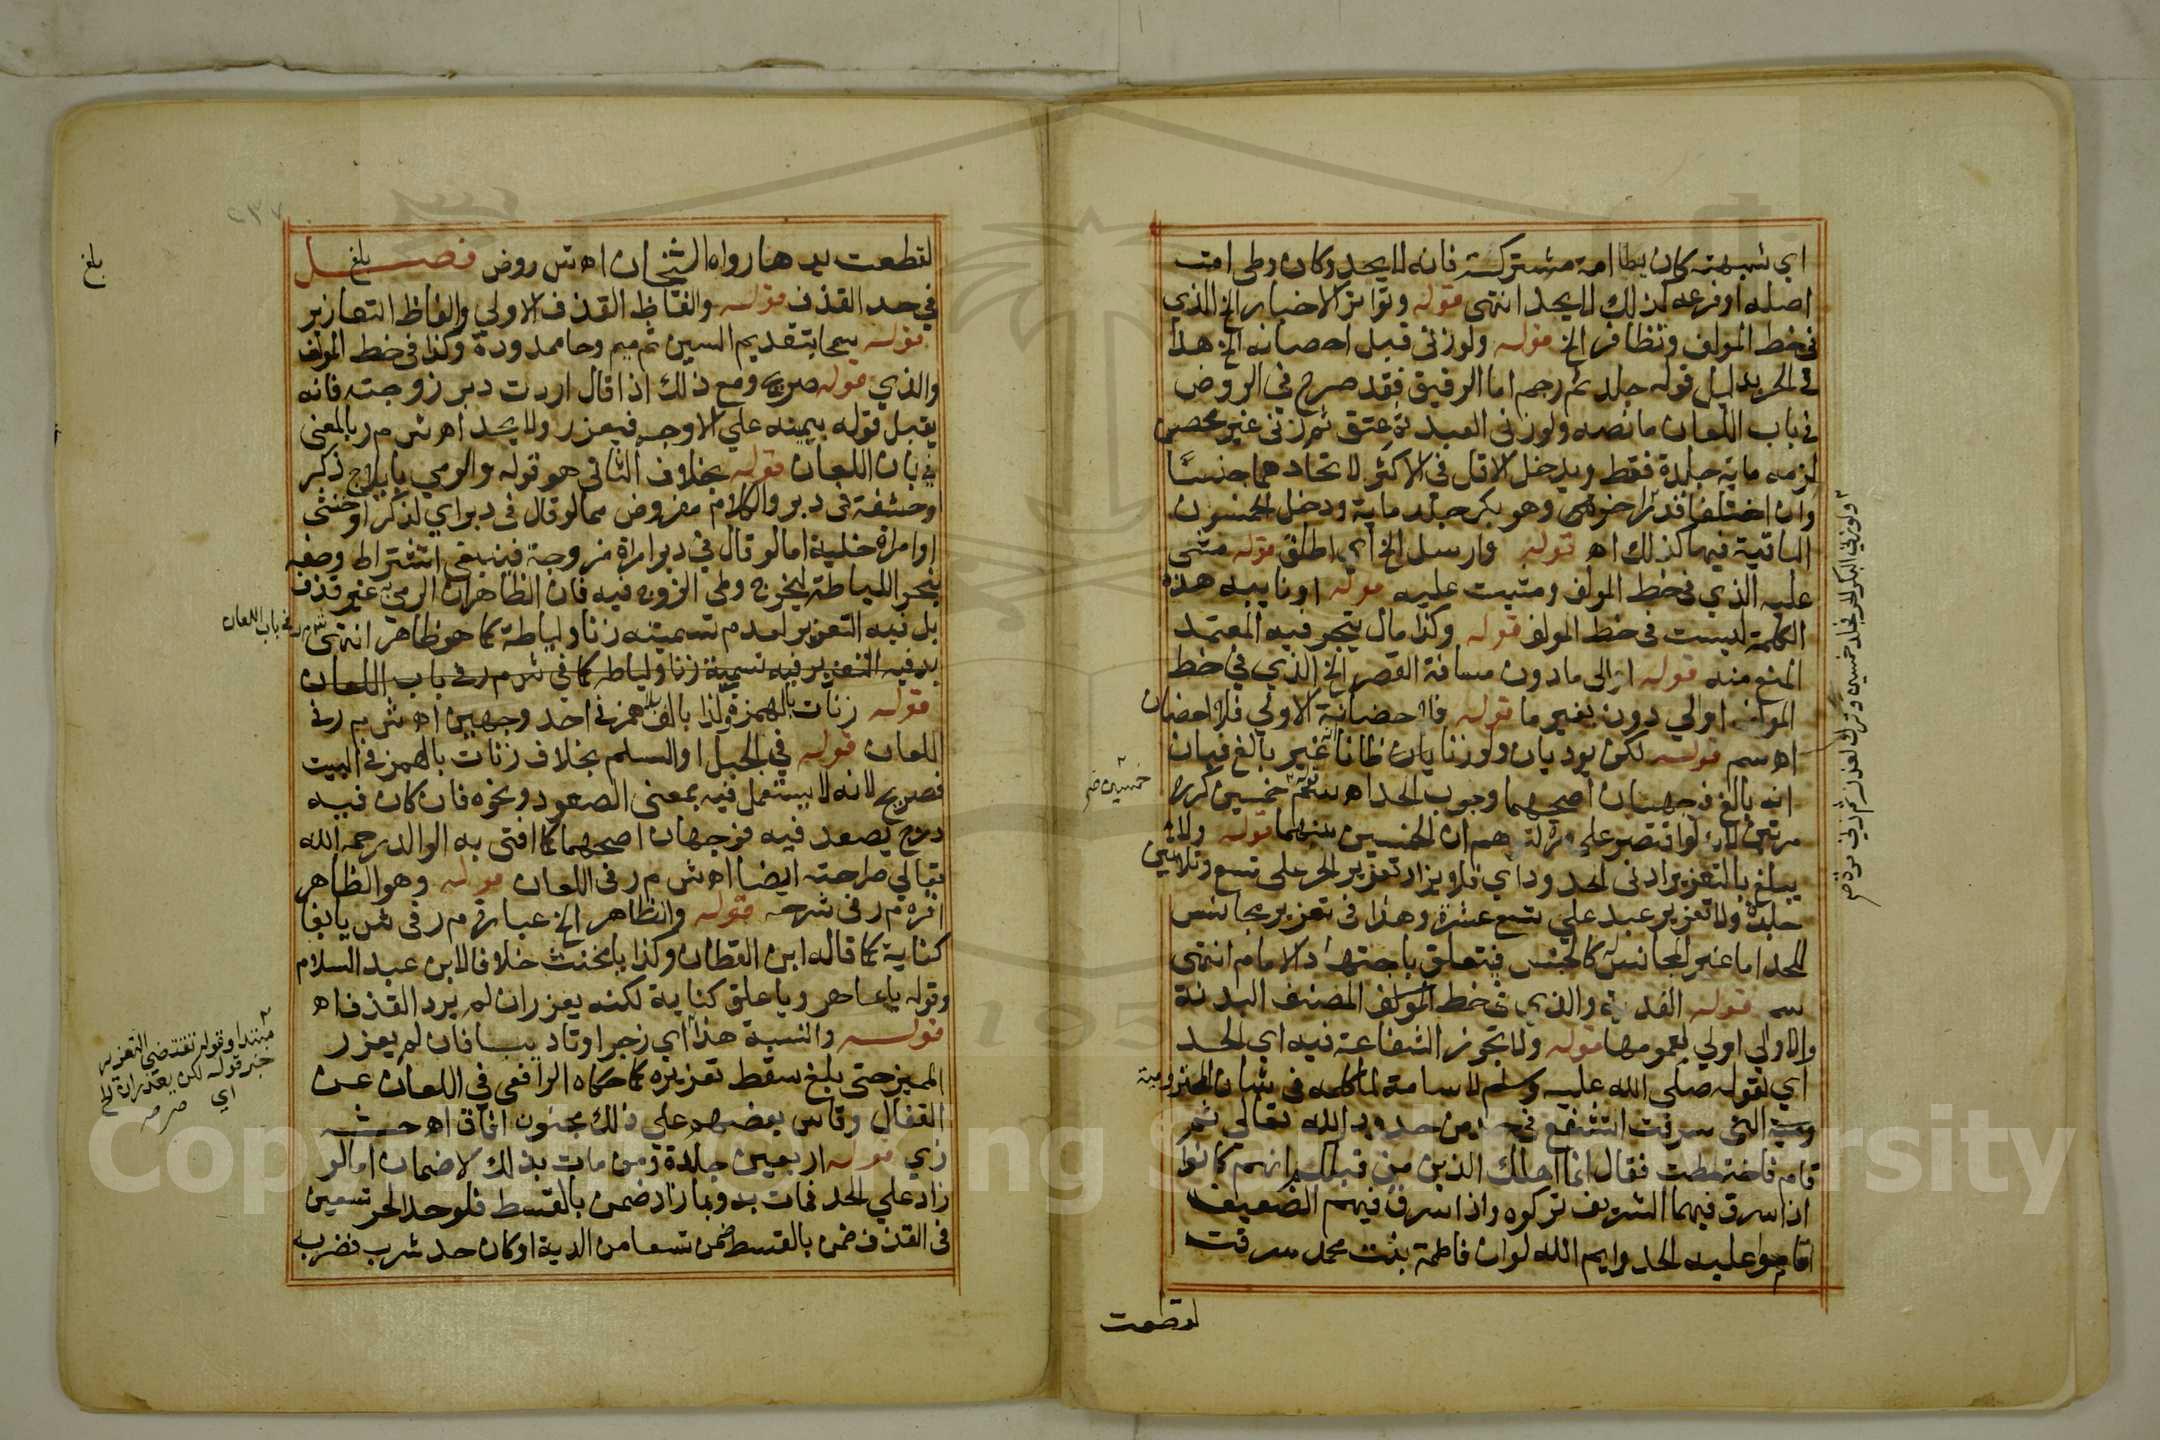 اي شبهته كان يطا امة مشتركة فانه لا يحد وكان وطي امت
اصله او فرعه لذلك لا يحد انتهى قوله وتواتر الاخبار الخ الذي
في خط المولف وتظافر الخ قوله ولو زنى قبل احصانه الخ هذا
في الحر بدليل قوله جلد ثم رجم اما الرقيق فقد صرح في الروض
في باب اللعان ما نصه ولو زنى العبد ثم عتق ثم زنى غير محصن
لزمه مايه جلدة فقط ويدخل الاقل في الاكثر لاتحادهما جنسا
وان اختلفا قدرا وهو بكر جلد ماية ودخل الخمسون
الباقية فيها كذلك اه قوله وارسل الخ اي اطلق قوله مثنى
عليه الذي في خط المولف ومثبت عليه قوله او نايبه هذه
الكلمة ليست في خط المولف قوله وكذا مال يتجر فيه المعتمد
المنع منه قوله الى ما دون مسافة القصر الخ الذي في خط
المولف او الي دون بغير ما قوله فالحضانة الاولي فلا حضان
اه سم قوله لكن يوديان ولو زنا يان ظانا انه غير بالغ فبان
انه بالغ فوجهان اصحهما وجوب الحد اه خمسين كرره
مرتين لانه لو اقتصر على مرة ان الخمسين بينهما قوله ولا
يبلغ بالتعزير ادنى الحدود اي فلا يزاد تعزير الحر على تسع وثلاثين
جلدة ولا تعزير عبد علي تسع عشرة وهذا في تعزير مجانس
للحد اما غير المجانس كالحبس فيتعلق باجتهاد الامام انتهى
سم قوله والذي في خط المولف المصنف البدنة
والاولي اولي لعمومها قوله ولا تجوز الشفاعة فيه اي الحد
اي لقوله صلى الله عليه وسلم لاسامة لما كلمه في شان المخزومية
التي سرقت اتشفع في حد من حدود الله تعالى ثم
قام فاختطب فقال انما اهلك الذين من قبلكم انهم كانوا
اذا سرق فيهم الشريف تركوه واذا سرق فيهم الضعيف
اقاموا عليه الحد وايم الله لوان فاطمة بنت محمد سرقت
لقطعت
خمسين صح
لقطعت يدها رواه الشيخان اه ش روض فصل
في حد القذف قوله والفاظ القذف الاولي والفاظ التعازير
قوله سمحا بتقديم السين ثم ميم وحا ممدودة وكذا في خط المولف
والذي قوله صريح ومع ذلك اذا قال اردت دبر زوجته فانه
يقبل قوله بيمينه علي الاوجه فيعزر ولا يحد اه ش م ر بالمعنى
في باب اللعان قوله بخلاف الثاني هو قوله والرمي بايلاج ذكر
او حشفة في دبر والكلام مفروض مما لو قال في دبر اي لذكر او خنثى
او امراة خلية اما لو قال في دبر امراة مزوجة فينبغي اشتراط وصفه
بنحو اللياطة ليخرج وطي الزوج فيه فان الظاهر ان الرمي به غير قذف
بل فيه التعزير لعدم تسميته زنا ولياطة كما هو ظاهر انتهى
بل فيه التعزير فيه تسمية زنا ولياطه كما في ش م ر في باب اللعان
قوله زنات بالهمزة وكذا بالف بلا همز في احد وجهين اه ش م ر في
اللعان قوله في الجبل او السلم بخلاف زنات بالهمز في البيت
فصريح لانه لا يستعمل فيه بمعنى الصعود ونحوه فان كان فيه
درج يصعد فيه فوجهان اصحهما كما افتى به الوالد رحمه الله
تعالي صراحته ايضا اه ش م ر في اللعان قوله وهو الظاهر
اقره م ر في شرحه قوله والظاهر الخ عبارة م ر في ش يا بغا
كناية كما قاله ابن القطان وكذا يا مخنث خلافا لابن عبد السلام
وقوله يا عاهر ويا علق كناية لكنه يعزر ان لم يرد القذف اه
قوله والنسبة هذا اي زجرا وتاديبا فان لم يعزر
المميز حتى بلغ سقط تعزيره كما حكاه الرافعي في اللعان عن
القفال وقاس بعضهم علي ذلك مجنون افاق اه حش
زي قوله اربعين جلدة فمن مات بذلك لا ضمان اما لو
زاد علي الحد فمات به وبما زاد ضمن بالقسط فلو حد الحر تسعين
في القذف ضمن بالقسط ضمن تسعا من الدية او كان حد شرب فضرب
بلغ
بلغ
ش م ر في باب اللعان
مبتدا وقوله تقتضي التعزير
خبر قوله لكن يعذران الخ
اي
Copyright © King Saud University
195